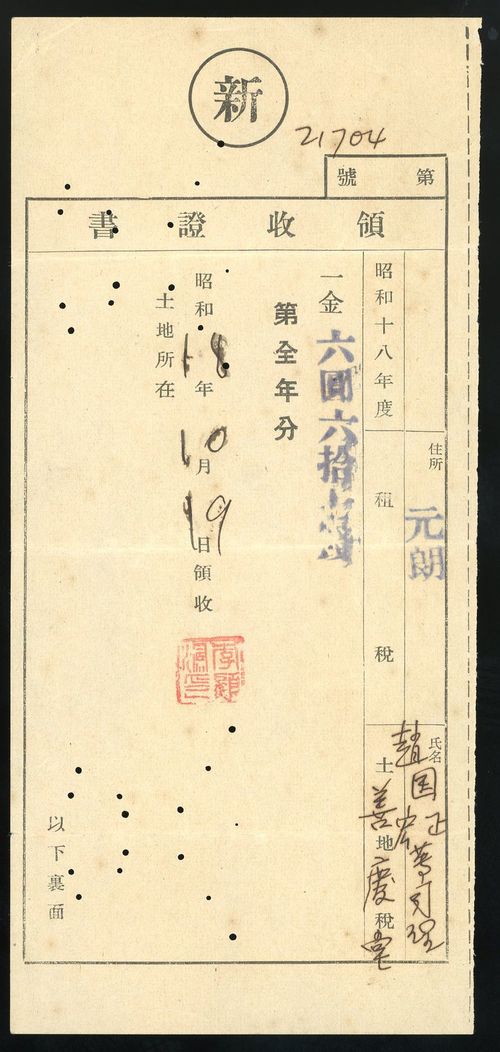 新
21704
第 號
領收證書
住所 元朗
氏名 趙国正
善慶堂
昭和十八年度 租税
土地税
一金 六圓六拾
第全年分
昭和18年10月19日領收
土地所在
以下裏面